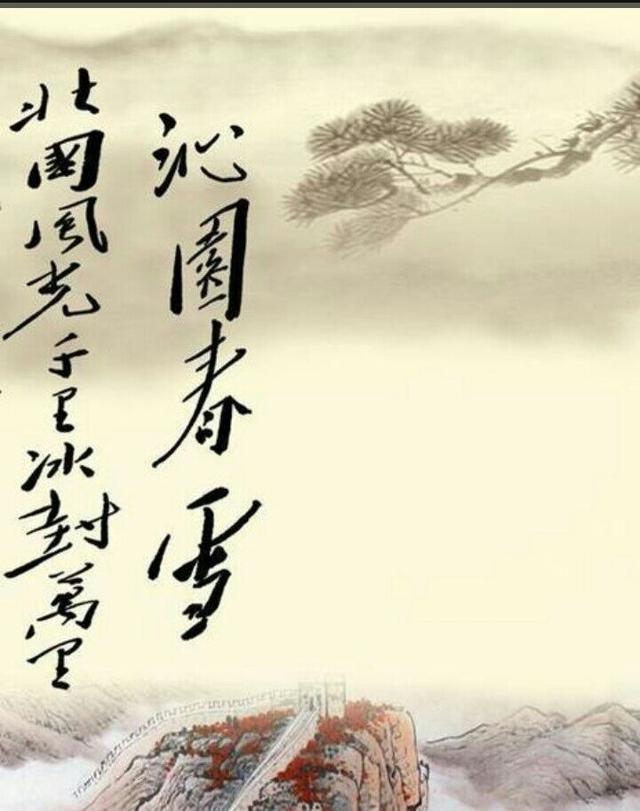 沁園春雪
北國風光千里冰封萬里